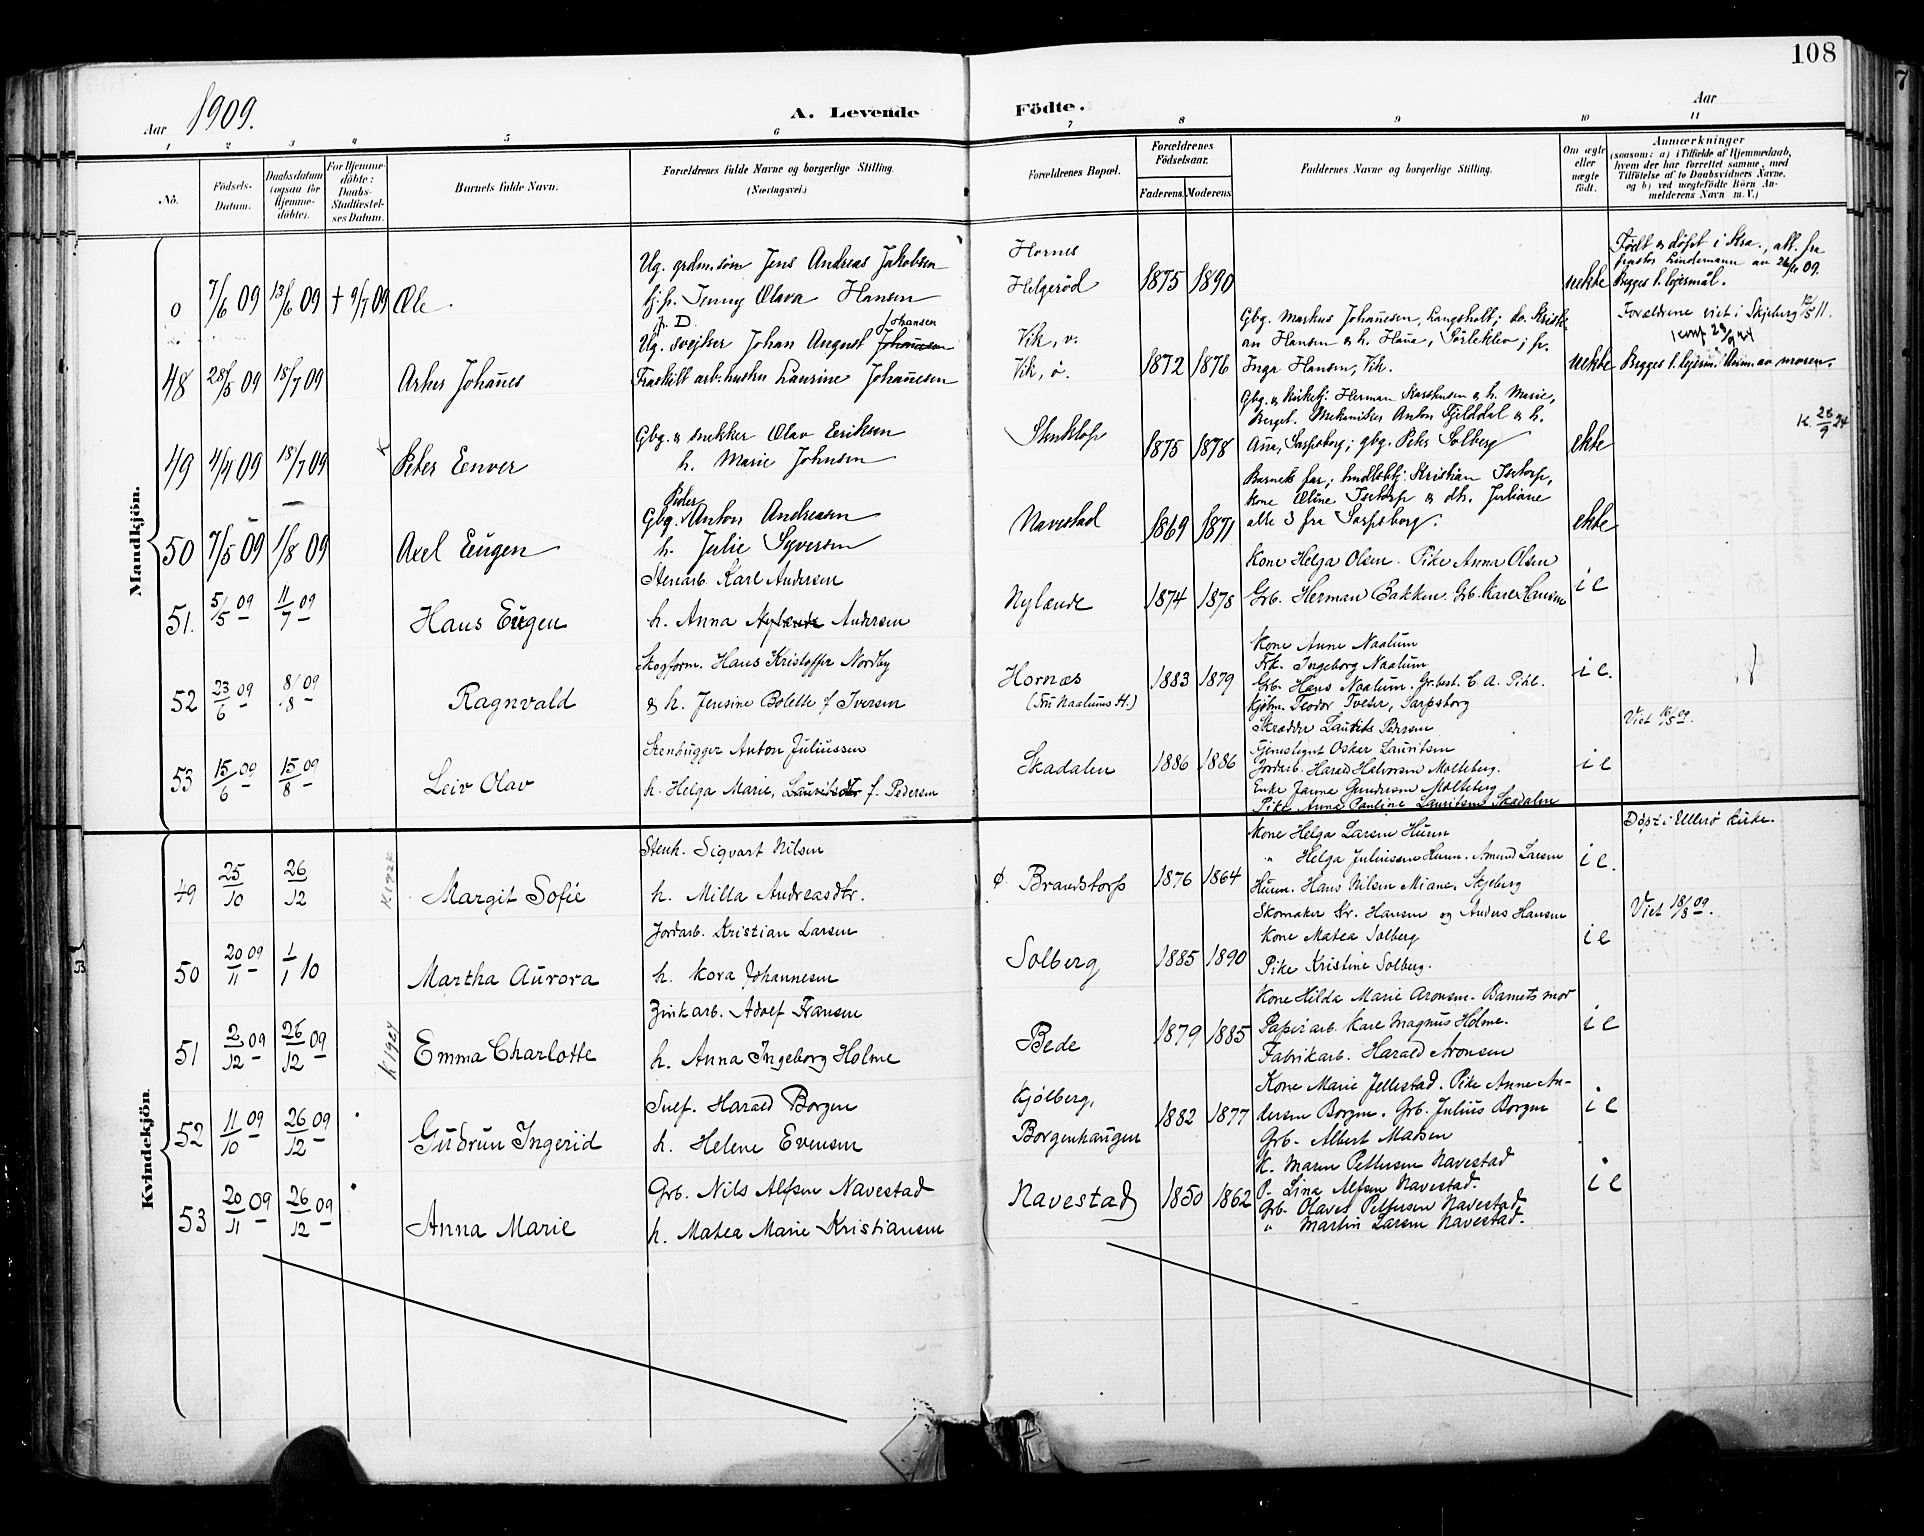 108
Aar 1909. A. Levende Födte. Aar
1 2 3 4 5 6 7 8 9 10 11
No. Födsels-Datum. Daabsdatum (ogsaa for Hjemmedøbte). For Hjemmedöbte: Daabs-Stadfæstelses Datum. Barnets fulde Navn. Forældrenes fulde Navne og borgerlige Stilling. (Næringsvei.) Forældrenes Bopæl. Forældrenes Födselsaar. Faderens. Moderens. Faddernes Navne og borgerlige Stilling. Om ægte eller uægte födt. Anmærkninger (saasom: a) i Tilfælde af Hjemmedaab, hvem der har forrettet samme, med Tilföielse af to Daabsvidners Navne, og b) ved uægtefödte Börn Anmelderens Navn m. V.)
Mandkjön.
0 7/6 09 13/6 09 † 9/7 09 Ole.
Ug. grdm.søn Jens Andreas Jakobsen
tj.p. Jenny Olava Hansen
Hornes
Helgerød
1875 1890 uekte
Født & døpt i Kra., att. fra
pastor Lindemann av 26/10 09.
Begges 1. leiersmål.
48 28/5 09 18/7 09 Arhes Johanes
Ug. svejser Johan August Johansen
Fraskilt arb.hustru Laurine Johanesen
Vik, v.
Vik, ø.
1872 1876
Gbg. Markus Johanesen, Langsholt; do. Kristi-
an Hansen & h. Hana, Sørleklev; p.
Inga Hansen, Vik.
uekte
Foreldrene viet i Skjeberg 12/5 11.
konf 28/9 24
Begges 1. leierm. Anm. av moren.
49 4/4 09 18/7 09 K Peter Eenver
Gbg. & snekker Olav Eriksen
h. Marie Johnsen
Stenklop
1875 1878
Gbg. & kirketj. Herman Karsthusen & h. Marie,
Berget. Mekaniker Anton Fjelddal & h.
Ana, Sarpsborg; gbg. Peter Solberg
ekte
K. 28/9 24
50 7/5 09 1/8 09 Axel Eugen
Gbg. Peder Anton Andreasen
h. Julie Syversen
Navestad
1869 1871
Barnets far; hndlsbtj. Kristian Isetorp,
kone Oline Isetorp & dtr. Juliane
alle 3 fra Sarpsborg.
ekte
51. 5/5 09 11/7 09 Hans Eugen
Stenarb. Karl Andersen
h. Anna Nylænde Andersen
Nylænde
1874 1878
Kone Helga Olsen. Pike Anna Olsen
Grb. Herman Bakken. Grb. Karel Hansen
i e
52 23/6 09 8/8 09 Ragnvald
Skogform. Hans Kristoffer Nordby
& h. Jensine Bolette f Iversen
Hornæs
(Fru Naalums H.)
1883 1879
Kone Anne Naalum
Frk. Ingeborg Naalum
Grb. Hans Naalum. Gr.best. C. A. Pihl.
Kjøbm. Teodor Tveter, Sarpsborg
i e.
53 15/6 09 15/8 09 Leiv Olav
Stenhugger Anton Juliussen
h. Helga Marie, Lauritsdtr f. Pedersen
Skadalen
1886 1886
Skrædder Laurits Pedersen
Tjenestegut Osker Lauritsen
Jordarb. Harald Halvorsen Molteberg.
Enke Janna Gundersen Molteberg
Pike Anna Pauline Lauritsen Skadalen
i e
Viet 16/5 09.
Kvindekjön.
49 25/10 26/12 K 1924 Margit Sofie
Stenh. Sigvart Nilsen
h. Milla Andreasdtr.
ø Brandstorp
1876 1864
Kone Helga Larsen Hunn
" Helga Juliussen Hunn. Amund Larsen
Hunn. Hans Nilsen Miane, Skjeberg
i e.
Døpt i Ullerø kirke.
50 20/11 09 1/1 10 Martha Aurora
Jordarb. Kristian Larsen
h. Kora Johannesen
Solberg
1885 1890
Skomaker Kr. Hansen og Anders Hansen
Kone Matea Solberg
Pike Kristine Solberg.
i e
Viet 18/8 09.
51 2/12 09 26/12 09 K 1924 Emma Charlotte
Zinkarb. Adolf Fransen
h. Anna Ingeborg Holme
Bede
1879 1885
Kone Hilda Marie Aronsen. Barnets mor
Papirarb. Karl Magnus Holme.
Fabrikarb. Harald Aronsen
i e
52 11/10 09 26/12 09 Gudrun Ingerid
Snef. Harald Borgen
h. Helene Evensen
Kjølberg,
Borgenhaugen
1882 1877
Kone Marie Jellestad. Pike Anne An-
dersen Borgen. Grb. Julius Borgen
Grb. Albert Madsen
i e
53 20/11 09 26/12 09 Anna Marie
Grb. Nils Alfsen Navestad
h. Matea Marie Kristiansen
Navestad
1850 1862
K. Maren Pettersen Navestad
P. Lina Alfsen Navestad.
Grb. Olaves Pettersen Navestad
" Martin Larsen Navestad.
i e